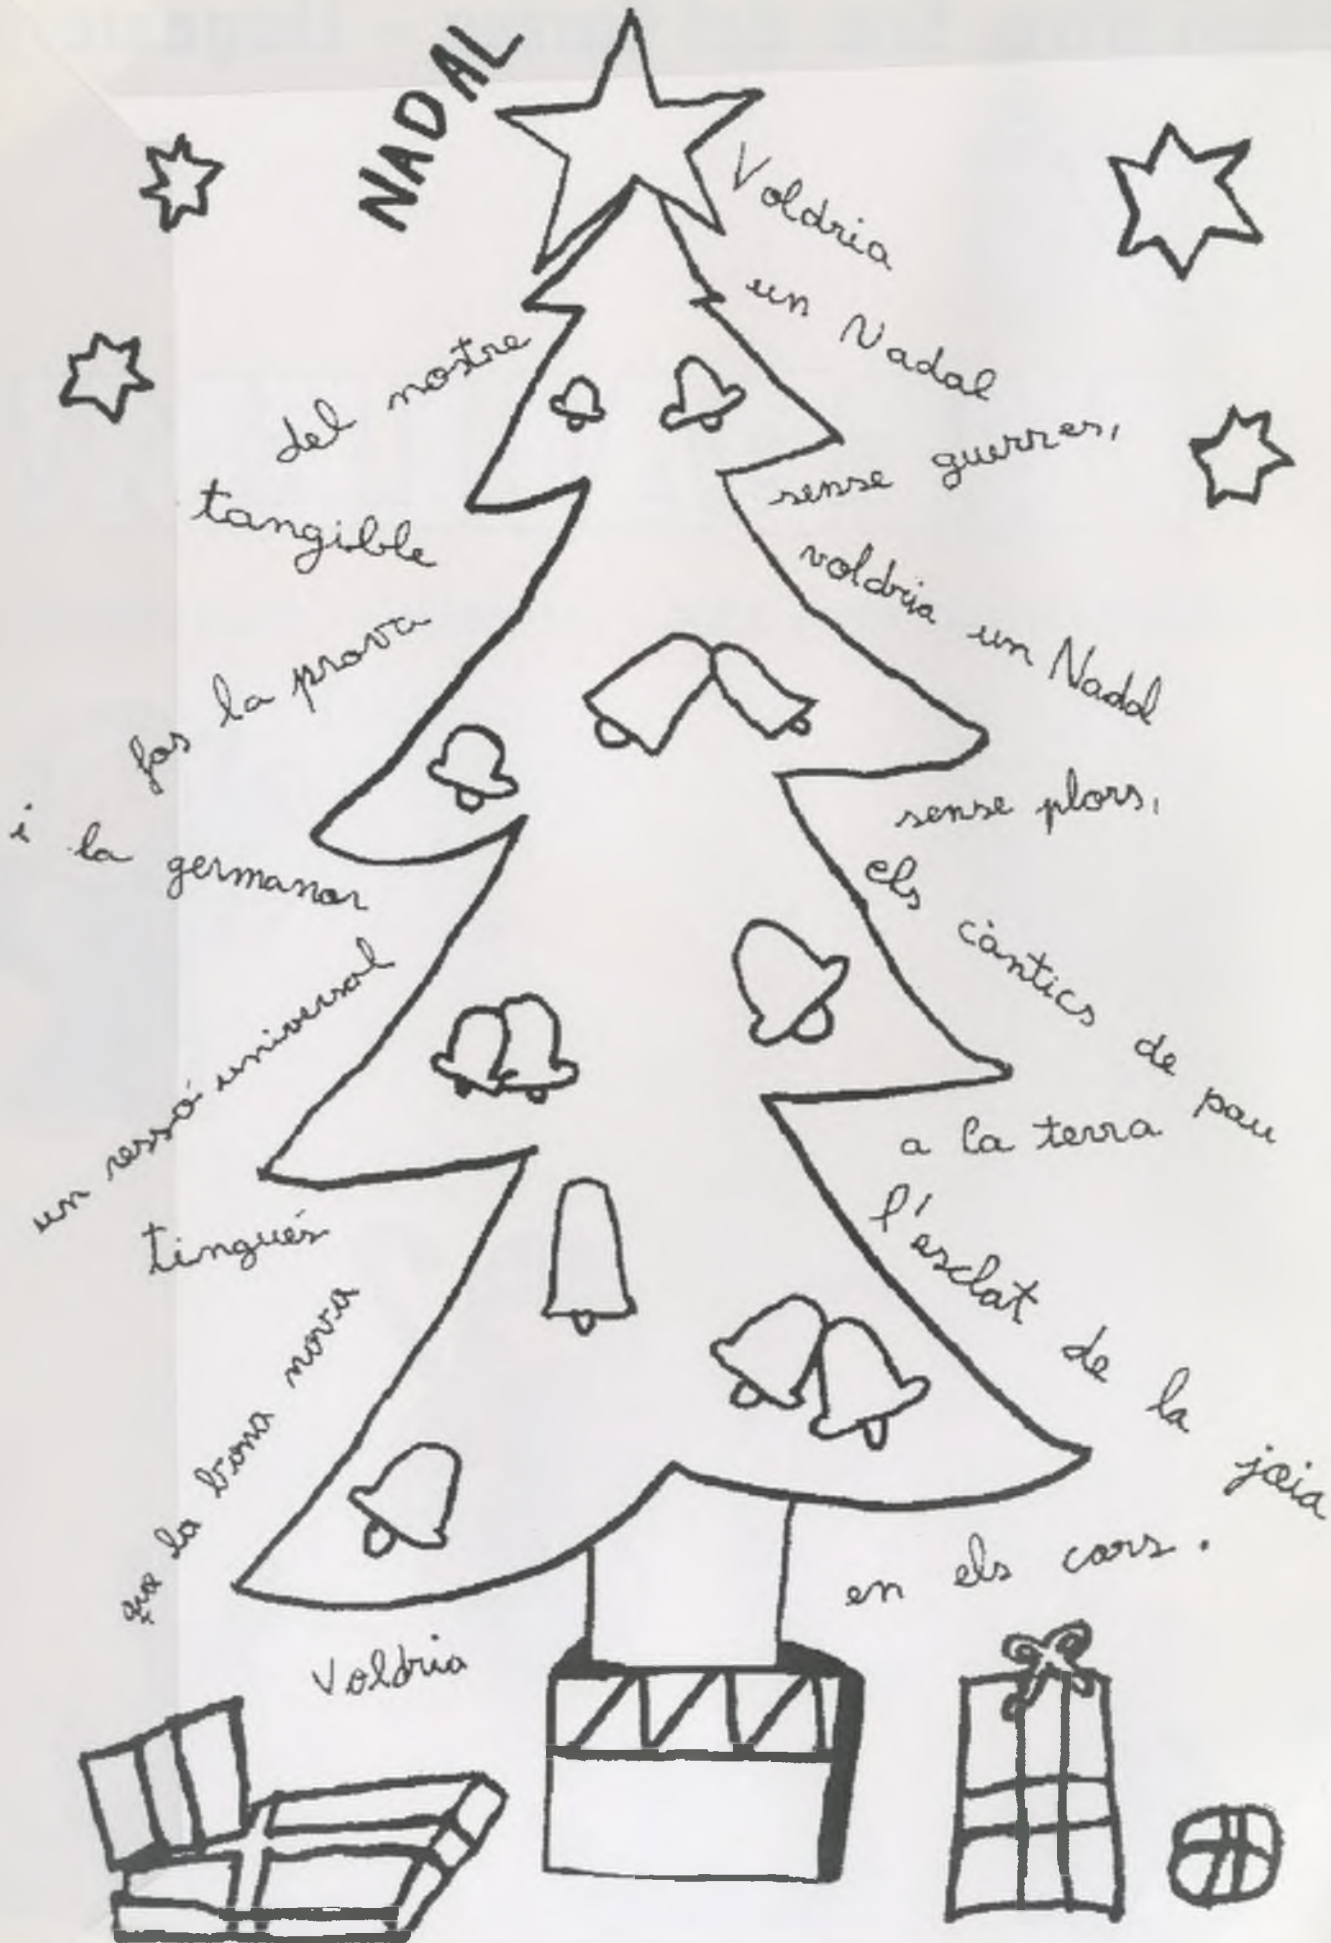 NADAL
Voldria
un Nadal
sense guerres,
voldria un Nadal
sense plors,
els càntics de pau
a la terra
l'esclat de la joia
en els cors.
Voldria
que la bona nova
tingués
un ressó universal
i la germanor
fos la prova
tangible
del nostre